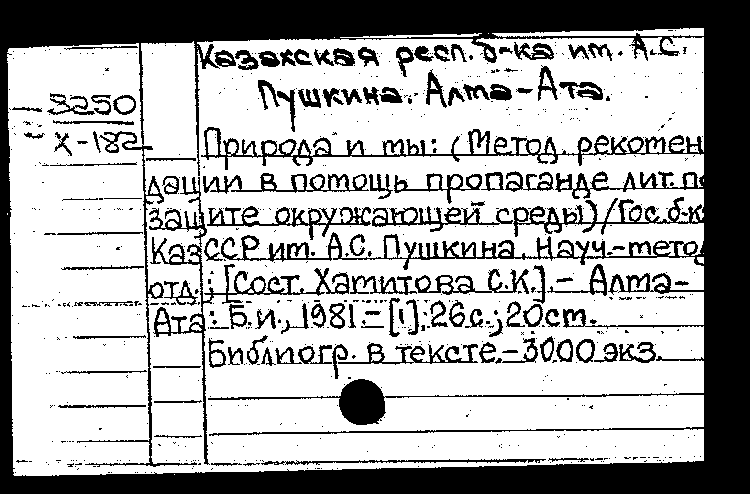 Казахская респ. б-ка им. А.С.
Пушкина. Алма-Ата.
3250
Х-182
Природа и ты: (Метод. рекомен
дации в помощь пропаганде лит. по
защите окружающей среды)/Гос. б-ка
КазССР им. А.С. Пушкина. Науч.-метод
отд.; [Сост. Хамитова С.К.].- Алма-
Ата: Б.и., 1981.- [1]; 26с.; 20см.
Библиогр. в тексте.-3000 экз.